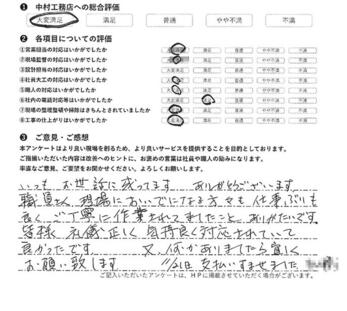 ❶ 中村工務店への総合評価
大変満足 満足 普通 やや不満 不満
❷ 各項目についての評価
①営業担当の対応はいかがでしたか 満足 普通 やや不満 不満
②現場監督の対応はいかがでしたか 満足 普通 やや不満 不満
③設計担当の対応はいかがでしたか 大変満足 満足 普通 やや不満 不満
④社員大工の対応はいかがでしたか 満足 普通 やや不満 不満
⑤職人の対応はいかがでしたか 満足 普通 やや不満 不満
⑥社内の電話対応等はいかがでしたか 大変満足 普通 やや不満 不満
⑦現場の整理整頓や掃除はきちんとされていましたか 満足 普通 やや不満 不満
⑧工事の仕上がりはいかがでしたか 満足 普通 やや不満 不満
❸ ご意見・ご感想
本アンケートはより良い現場を創るため、より良いサービスを提供することを目的としております。
ご指摘いただいた内容は改善へのヒントに、お褒めの言葉は社員や職人の励みになります。
率直なご意見、ご要望をお聞かせください。よろしくお願いします。
いつもお世話に成ってます ありがとうございます
職人さん 現場においでになる方々も 仕事ぶりも
良く ご丁寧に作業されてましたこと ありがたいです。
皆様 礼儀正しく 気持良く対応されていて
良かったです。 又、何かありましたら宜しく
お願い致します 11/21日支払いすませました
ご記入いただいたアンケートは、HPに掲載させていただく場合がございます。